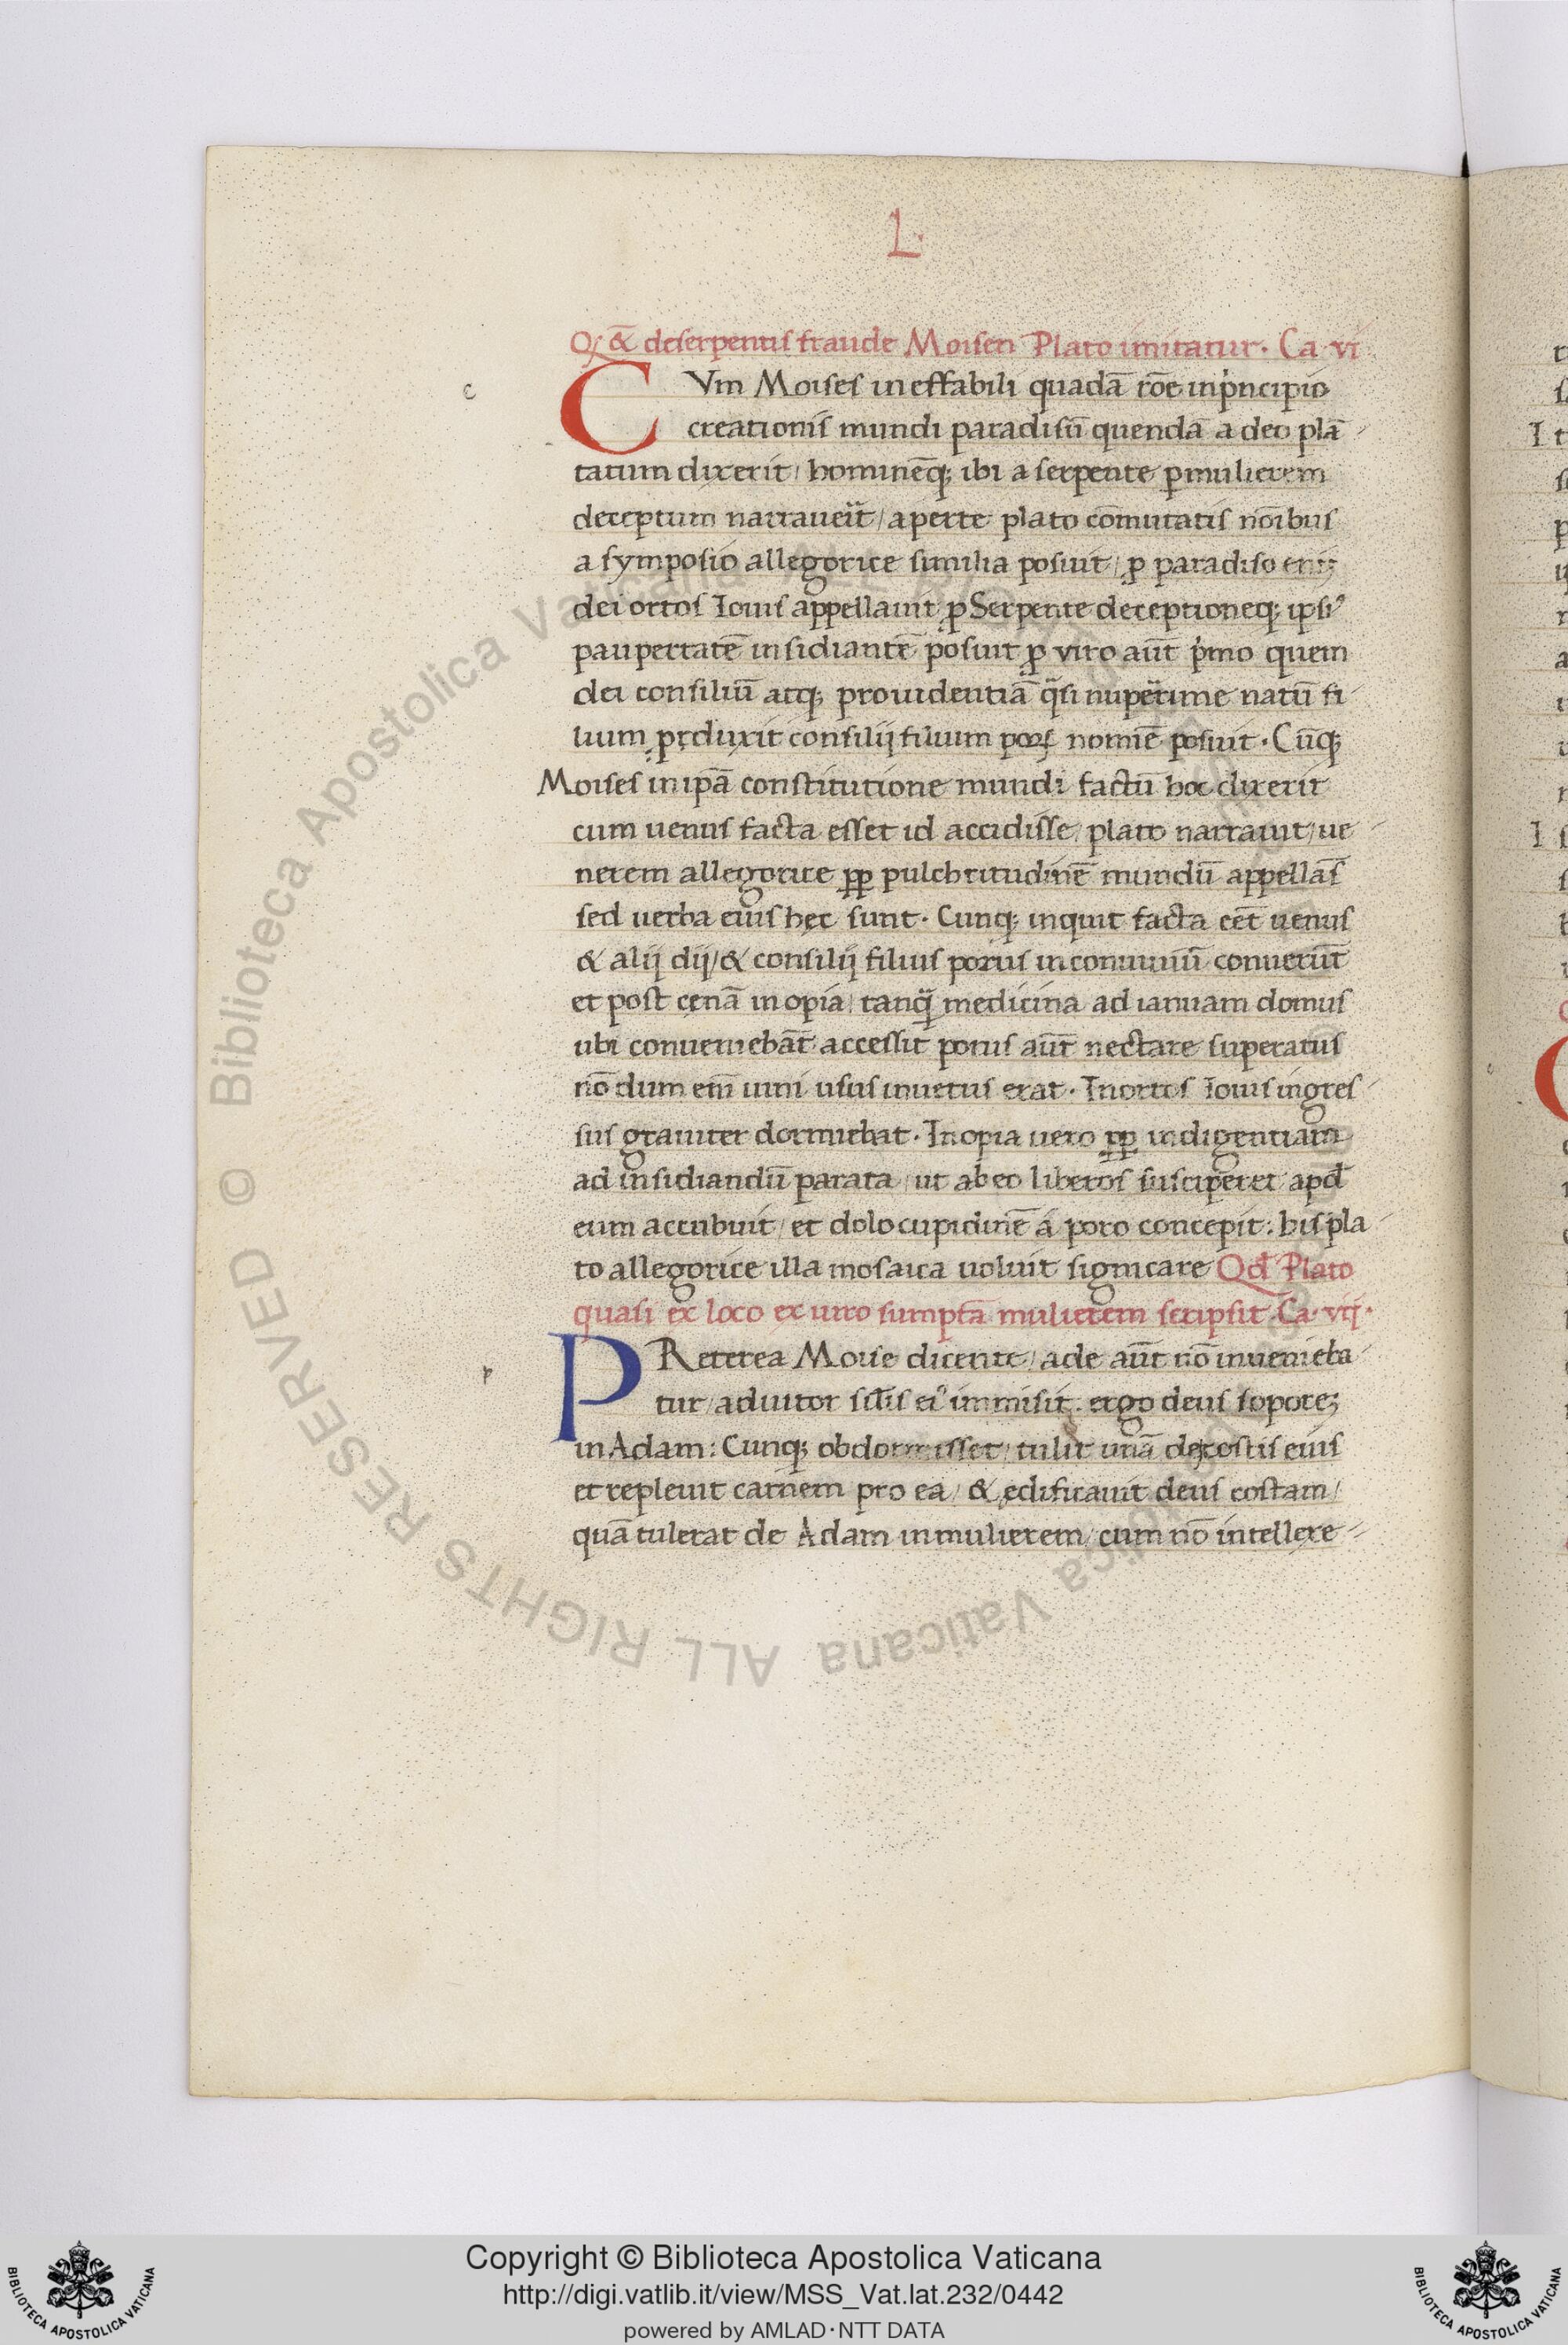 L.
Qꝫ & de serpentis fraude Moisen Plato imitatur. Ca. vi
c
CVm Moises ineffabili quadā rōe in pͥncipio
creationis mundi paradisū quendā a deo plā
tatum dixerit / hominēqꝫ ibi a serpente ꝑ mulierem
deceptum narraverit / aperte plato cōmutatis noībus
a symposio allegorice similia posuit / ꝓ paradiso enī
dei ortos Iouis appellauit ꝓ Serpente deceptioneqꝫ ipsiꝰ
paupertatē insidiantē posuit ꝓ viro aūt pͥmo quem
dei consiliū atqꝫ prouidentiā q̄si nuperrime natū fi
lium ꝓduxit consilij filium poꝝ nomīe posuit. Cūqꝫ
Moises in ip̄a constitutione mundi factū hoc dixerit
cum uenus facta esset id accidisse / plato narrauit / ue
nerem allegorice ꝓꝑ pulchritudinē mundū appellās
sed uerba eius hęc sunt. Cunqꝫ inquit facta eēt uenus
& alij dij / & consilij filius porus in conuiuiū conuerūt
et post cęnā inopia / tanq̄ medicina ad ianuam domus
ubi conueniebāt accessit porus aūt nectare superatus
nō dum enī uini usus inuetus erat. In ortos Iouis ingres
sus grauiter dormiebat. Inopia uero ꝓꝑ indigentiam
ad insidiandū parata / ut ab eo liberos susciperet apd̄
eum accubuit / et dolo cupidinē á poro concepit: his pla
to allegorice illa mosaica uoluit signicare Qd̄ Plato
quasi ex loco ex uiro sumptā mulierem scripsit. Ca. vij.
p
PReterea Moise dicente / ade aūt nō inuenieba
tur / adiutor sil̄is eiꝰ immisit. ergo deus soporeꝫ
in Adam: Cunqꝫ obdormisset / tulit unā de costis eius
et repleuit carnem pro ea / & ędificauit deus costam /
quā tulerat de Adam in mulierem / cum nō intellexe
© Biblioteca Apostolica Vaticana ALL RIGHTS RESERVED
Copyright © Biblioteca Apostolica Vaticana
http://digi.vatlib.it/view/MSS_Vat.lat.232/0442
powered by AMLAD·NTT DATA
BIBLIOTECA APOSTOLICA VATICANA
BIBLIOTECA APOSTOLICA VATICANA